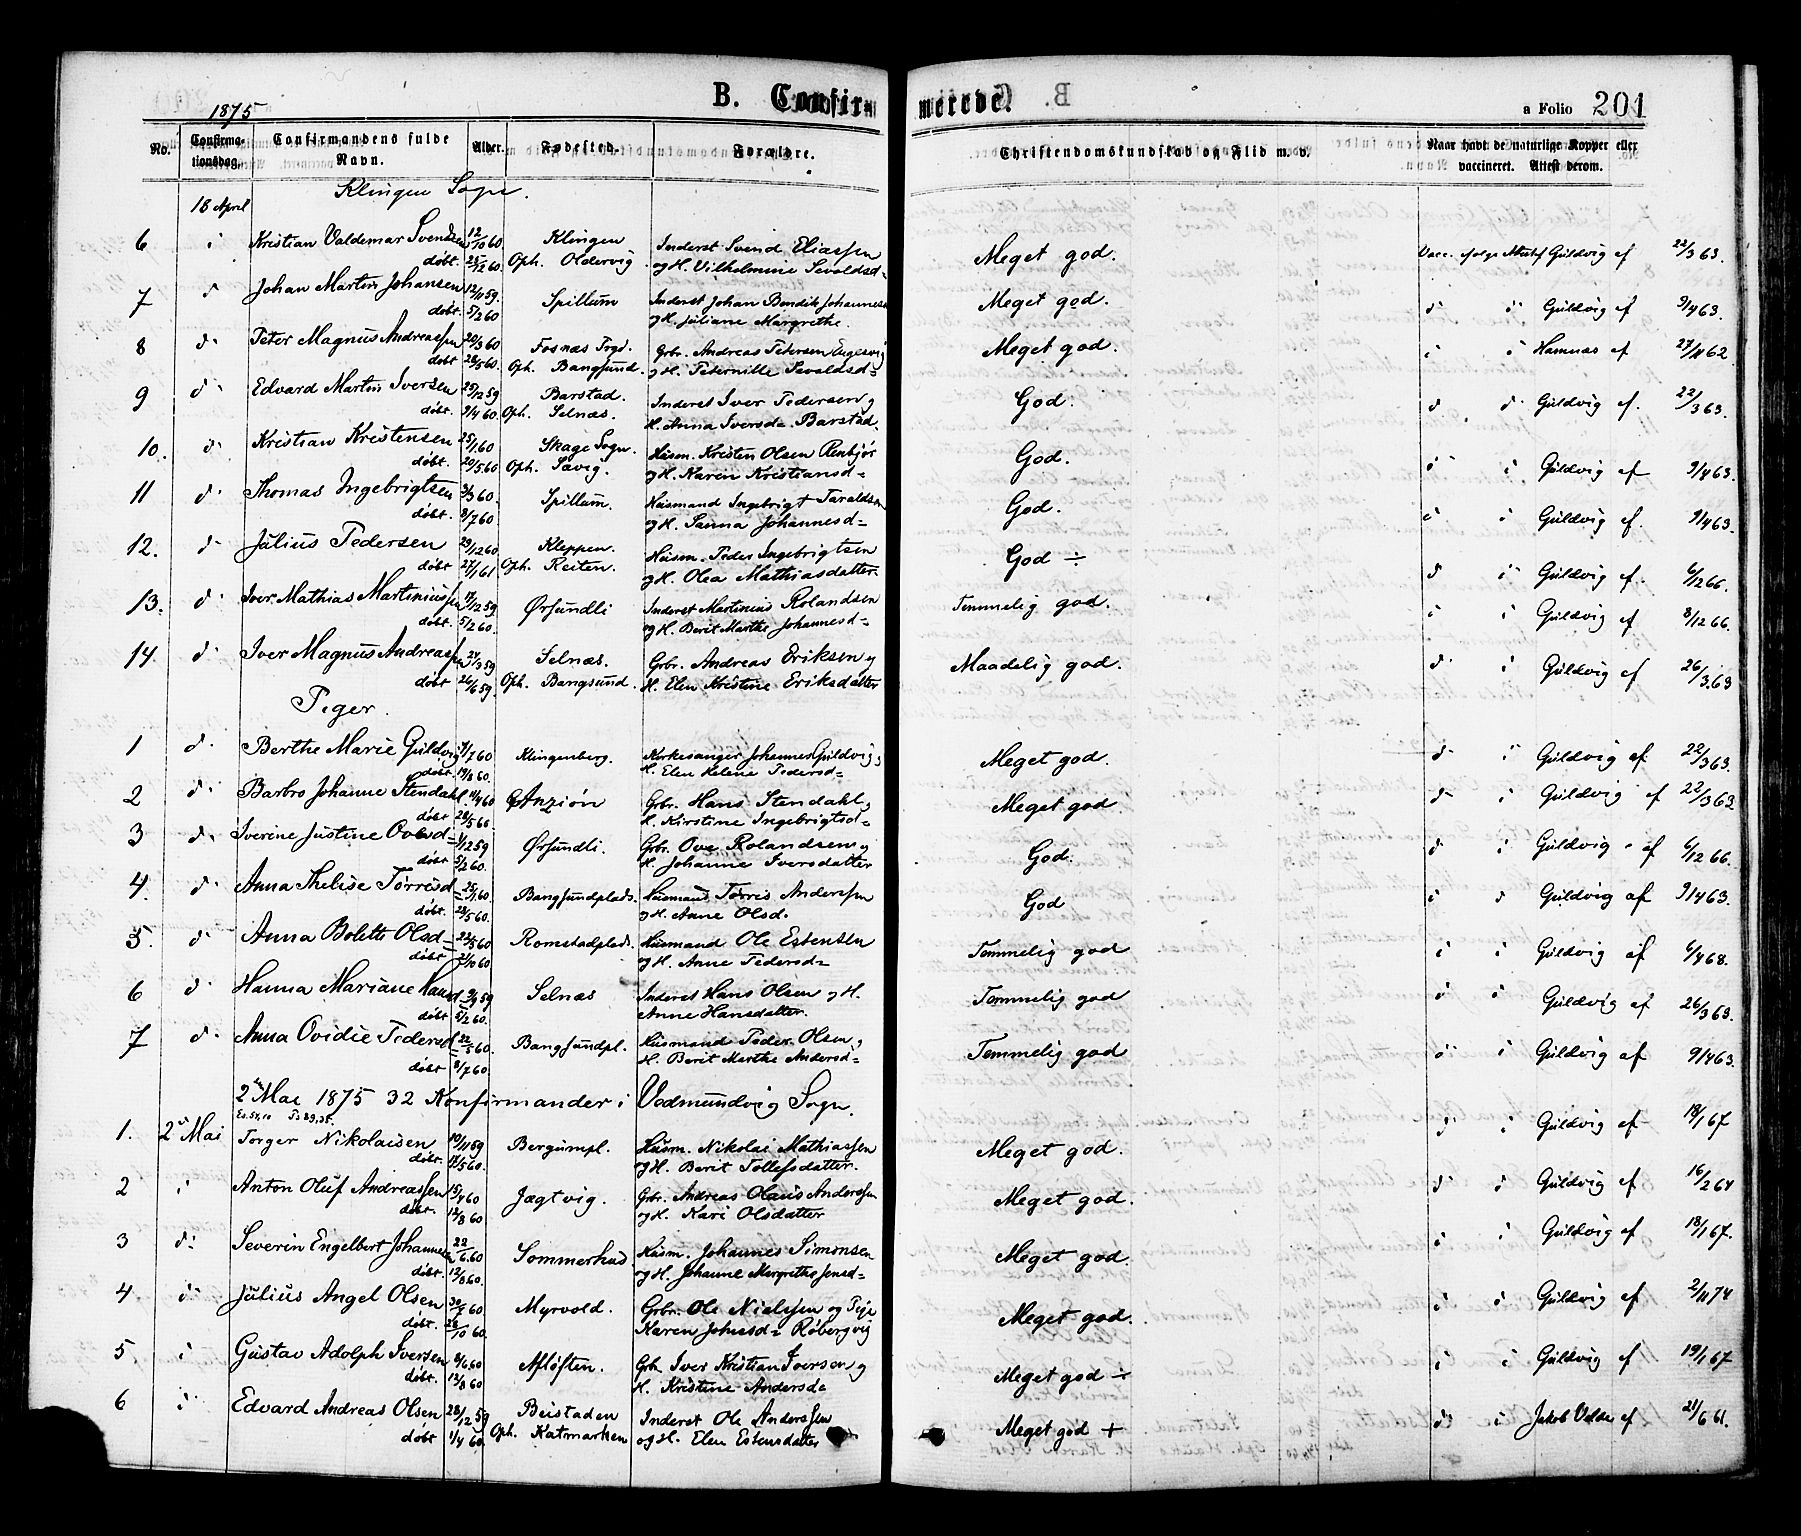 1875
B. Confirmerede.
a Folio 201
No. Confirmationsdag. Confirmandens fulde Navn. Alder. Fødested. Forældre. Christendomskundskab og Flid m. v. Naar havt de naturlige Kopper eller vaccineret. Attest derom.
Klingen Sogn.
18 April
6 i Kristian Valdemar Svendsen 12/10 60 Klingen Inderst Svend Eliassen Meget god. Vacc. Guldvig af 22/3 63.
døbt 25/12 60. Oph. Oldervig og H. Vilhelmine Sevaldsd=
7 d Johan Martin Johansen 12/11 59. Spillum Inderst Johan Bendik Johannes Meget god. d i Guldvig af 9/4 63.
døbt 5/2 60 og H. Juliane Margrethe.
8 d Peter Magnus Andreassen 20/3 60 Fosnæs Prgd. Grb. Andreas Petersen Engesvig Meget god. i i Hamnæs af 27/11 62
døbt 28/5 60. Oph. Bangsund. og H. Peternille Sevaldsd=
9 d Edvard Martin Iversen 25/12 59 Barstad. Inderst Iver Pedersen og God. d d Guldvig af. 22/3 63.
døbt. 9/4 60. Oph. Selnæs. H. Anna Iversd= Barstad.
10. d Kristian Kristensen 25/1 60 Skage Sogn. Husm. Kristen Olsen Renbjør God. i i Guldvig af 9/4 63.
døbt. 20/5 60 Oph. Savig. og H. Karen Kristiansd=
11 d Thomas Ingebrigtsen 3/3 60 Spillum. Husmand Ingebrigt Taraldsen God. i i Guldvig af. 9/4 63.
døbt. 8/7 60 og H. Sanna Johannesd=
12. d Julius Pedersen 29/12 60 Kleppen. Husm. Peder Ingebrigtsen God ÷ d i Guldvig af 6/12 66.
døbt 27/1 61 Oph. Reiten. og H. Olea Mathiasdatter
13. d Iver Mathias Martiniussen 17/12 59 Ørsundli Inderst Martinius Rolandsen Temmelig god. i i Guldvig af 8/12 66.
døbt. 5/2 60. og H. Berit Marthe Johannesd=
14. d Iver Magnus Andreassen 24/3 59 Selnæs. Grb. Andreas Eriksen og Maadelig god. d i Guldvig af 26/3 63
døbt 26/6 59. Oph. Bangsund. H. Elen Kristine Eriksdatter
Piger.
1 d Berthe Marie Guldvig 7/7 60 Klingenberg. Kirkesanger Johannes Guldvig, Meget god. d i Guldvig af 22/3 63.
døbt. 19/8 60. H. Elen Helene Pedersd=
2 d Barbro Johanne Stendahl. 11/4 60 Anziøn Grb. Hans Stendahl, Meget god d i Guldvig af 22/3 63
døbt 28/5 60. H. Kirstine Ingebrigtsd=
3 d Iverine Justine Ovesd= 1/12 59 Ørsundli. Grb. Ove Rolandsen og God. d i Guldvig af 6/12 66.
døbt 5/2 60. H. Johanne Iversdatter
4. d Anna Thelise Tørrisd= 25/1 60. Bangsundplads. Husmand Tørris Anderssen God i d Guldvig af 9/4 63.
døbt. 28/5 60. og H. Anne Olsd.
5. d Anna Bolette Olsd= 22/5 60 Romstadplads. Husmand Ole Estensen Temmelig god i i Guldvig af 6/4 68.
døbt 21/10 60 og H. Anne Pedersd=
6 d Hanna Mariane Hansd= 9/9 59 Selnæs Inderst Hans Olsen og H. Temmelig god d i Guldvig af 26/3 63.
døbt 5/2 60. Anne Hansdatter.
7 d Anna Ovidie Pedersd= 22/5 60. Bangsundpl. Husmand Peder Olsen, Temmelig god d i Guldvig af 9/4 63.
døbt 8/7 60. H. Berit Marthe Andersd=
2den Mai 1875 32 Konfirmander i Vedmundvig Sogn.
1. 2den Mai Torger Nikolaisen 10/11 59 Bergumpl. Husm. Nikolai Mathiassen Meget god. d i Guldvig af 18/1 67
døbt. 17/5 60. og H. Berit Tollefsdatter.
2 i Anton Oluf Andreassen 15/4 60 Jægtvig. Grb. Andreas Olaus Anderssen Meget god. d i Guldvig af 16/2 64
døbt. 12/8 60 og H. Kari Olsdatter
3 d: Severin Engelbert Johannesen 22/6 60 Sommerhud Husm. Johannes Simonsen Meget god. i i Guldvig af 18/1 67.
døbt. 12/8 60. og H. Johanne Mergrethe Jensd=
4 i Julius Angel Olsen 30/7 60 Myrvold. Grb. Ole Nielssen og Pige Meget god. i i Guldvig af 2/11 74
døbt. 28/10 60. Karen Johnsd= Røbergvig
5 i Gustav Adolph Iversen 8/6 60 Afløften. Grb. Iver Kristian Iversen og Meget god ÷ i i Guldvig af 19/1 67
døbt. 12/8 60 H. Kristine Andersd=
6 i Edvard Andreas Olsen 28/12 59 Beistaden Inderst Ole Anderssen Meget god + d i Jakob Velde af 21/6 61.
døbt 1/4 60. Oph. Katmarken og H. Elen Estensdatter